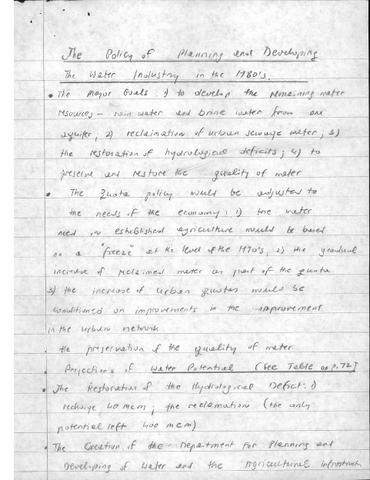 The Policy of Planning and Developing
The Water Industry in the 1980's.
• The Major Goals: 1) to develop the remaining water
resources – rain water and brine water from one
aquifer, 2) reclamation of urban sewage water, 3)
the restoration of hydrological deficits; 4) to
preserve and restore the quality of water
• The quota policy would be adjusted to
the needs of the economy: 1) the water
used in established agriculture would be based
on a "freeze" at the level of the 1970's, 2) the gradual
increase of reclaimed water as part of the quota
3) the increase of urban quotas would be
conditioned on improvements in the improvement
in the urban network
the preservation of the quality of water
• Projections of Water Potential (See Table on p. 72]
• The Restoration of the Hydrological Deficit: 1)
recharge 40 mcm, the reclamation (the only
potential left 400 mcm)
• The Creation of the Department For Planning and
Developing of Water and the Agricultural infrastruc.